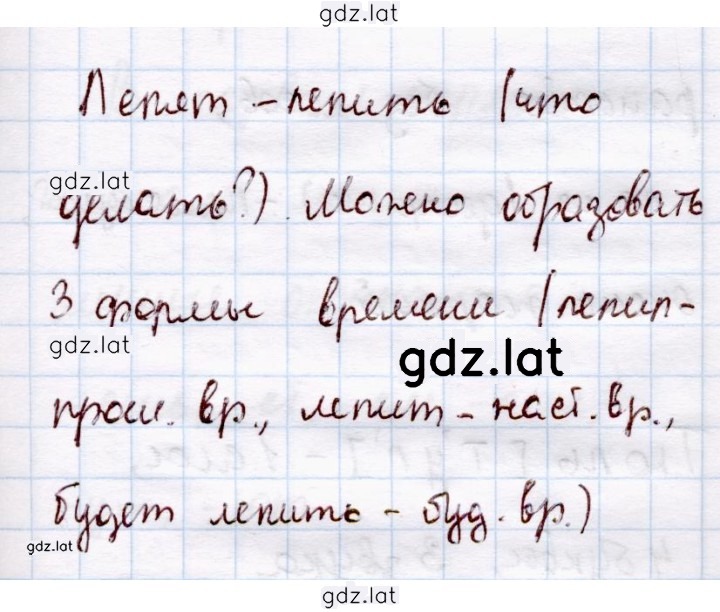 gdz.lat
Лепят - лепить (что
gdz.lat
делать?). Можно образовать
3 формы времени (лепил-
gdz.lat
gdz.lat
прош. вр., лепит - наст. вр.,
будет лепить - буд. вр.)
gdz.lat
gdz.lat